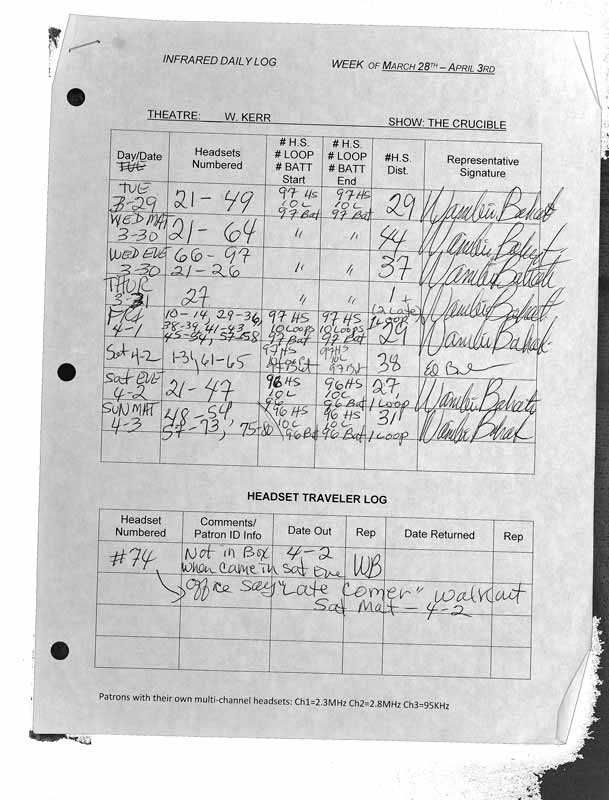 INFRARED DAILY LOG WEEK OF MARCH 28TH – APRIL 3RD
THEATRE: W. KERR SHOW: THE CRUCIBLE
Day/Date Headsets Numbered # H.S. # LOOP # BATT Start # H.S. # LOOP # BATT End #H.S. Dist. Representative Signature
TUE
TUE 3-29 21-49 97 HS 10 L 97 Bat 97 HS 10 L 97 Bat 29
WED MAT 3-30 21-64 " " 44
WED EVE 3-30 66-97 21-26 " " 37
THUR 3-31 27 " " 1 +
FRI 4-1 10-14, 29-36, 38-39, 41-43, 45-54, 57-58 97 HS 10 Loops 97 Bat 97 HS 10 Loops 97 Bat (2 Late 1 Loop 29
Sat 4-2 1-31, 61-65 97 HS 10 Loop 97 Bat 97 HS 10 L 97 Bat 38
Sat EVE 4-2 21-47 96 HS 10 L 96 96 HS 10 L 96 Bat 27, 1 Loop
SUN MAT 4-3 48-54, 57-73, 75-80 96 HS 10 L 96 Bat 96 HS 10 L 96 Bat 31 1 Loop
HEADSET TRAVELER LOG
Headset Numbered Comments/ Patron ID Info Date Out Rep Date Returned Rep
#74 Not in Box when came in Sat Eve 4-2 WB
office say "Late Comer" walkout
Sat Mat - 4-2
Patrons with their own multi-channel headsets: Ch1=2.3MHz Ch2=2.8MHz Ch3=95KHz